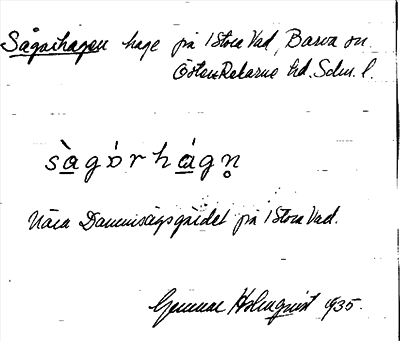 Sågarhagen hage på 1 Stora Vad, Barva sn.
Öster Rekarne hd. Sdm. l.
sàgɒrhágn̥
Nära Dammsågsgärdet på 1 Stora Vad.
Gunnar Holmquist 1935.